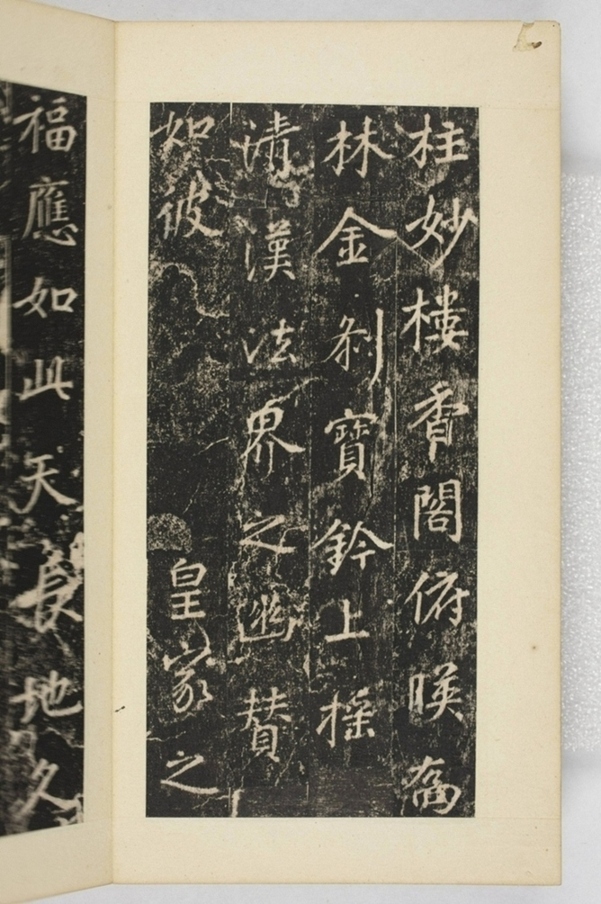 柱妙樓香閣俯暎喬
林金刹寶鈴上搖
清漢法界之幽贊
如彼皇家之
福應如此天長地久